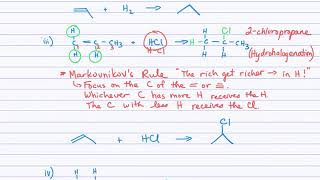 + H₂ →
H Cl
iii) C = C - CH₃ + HCl → H - C - C - CH₃ 2-chloropropane
H H H H (Hydrohalogenation)
* Markovnikov's Rule "The rich get richer → in H!"
↳ Focus on the C of the = or ≡.
Whichever C has more H receives the H.
The C with less H receives the Cl.
Cl
+ HCl →
iv) H H